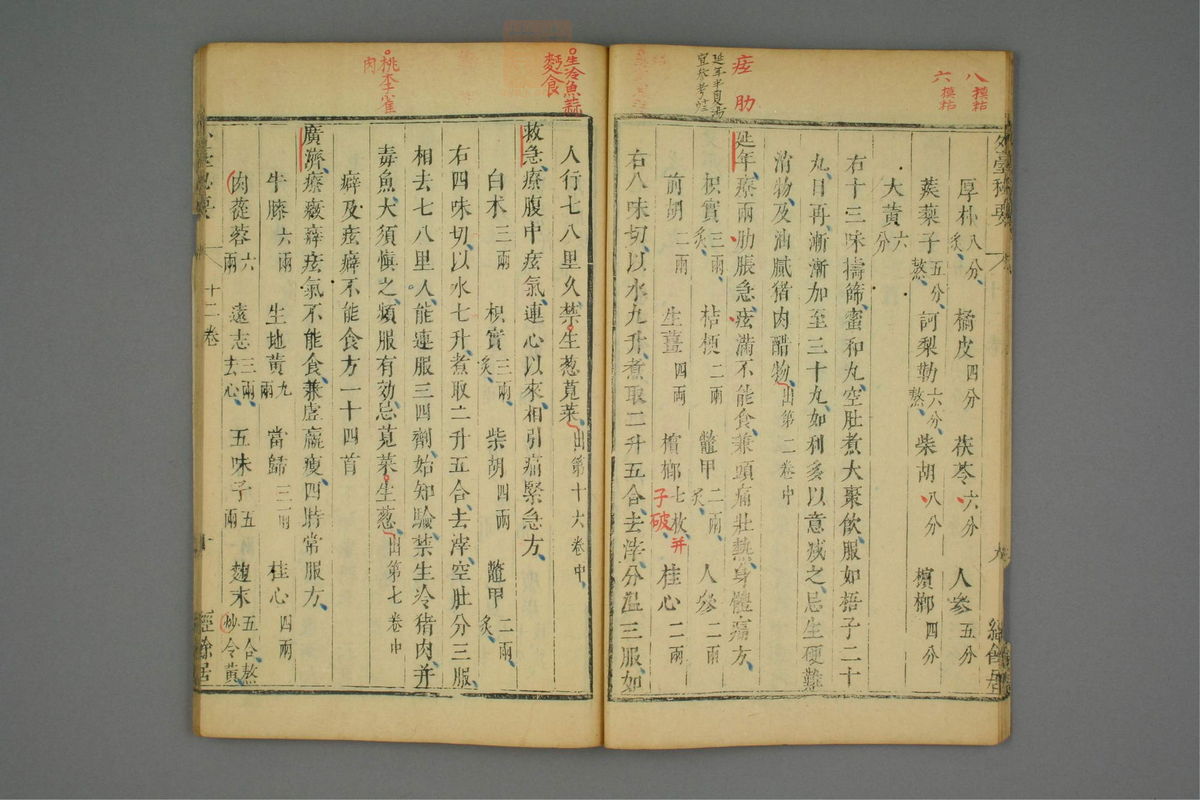 外臺秘要
厚朴八分炙 橘皮四分 茯苓六分 人參五分
蒺藜子五分熬 訶梨勒六分熬 柴胡八分 檳榔四分
大黃六分
右十三味擣篩蜜和丸空肚煮大棗飲服如梧子二十
丸日再漸漸加至三十丸如利多以意減之忌生硬難
消物及油膩猪肉醋物出第二卷中
延年療兩肋脹急痃滿不能食兼頭痛壯熱身體痛方
枳實三兩炙 桔梗二兩 鼈甲二兩炙 人參二兩
前胡二兩 生薑四兩 檳榔七枚 桂心二兩
右八味切以水九升煮取二升五合去滓分温三服如
八模粘
六模粘
痃肋
延年半夏湯
宜參考
子破
并
人行七八里久禁生葱莧菜出第十六卷中
救急療腹中痃氣連心以來相引痛緊急方
白朮三兩 枳實三兩炙 柴胡四兩 鼈甲二兩炙
右四味切以水七升煮取二升五合去滓空肚分三服
相去七八里人能連服三四劑始知驗禁生冷猪肉并
毒魚大須愼之頻服有効忌莧菜生葱出第七卷中
癖及痃癖不能食方一十四首
廣濟療癥癖痃氣不能食兼虛羸瘦四時常服方
牛膝六兩 生地黃九兩 當歸三兩 桂心四兩
肉蓯蓉六兩 遠志三兩去心 五味子五兩 麴末五合熬炒令黃
十二卷
十
經餘居
生冷魚蒜
麪食
桃李雀
肉